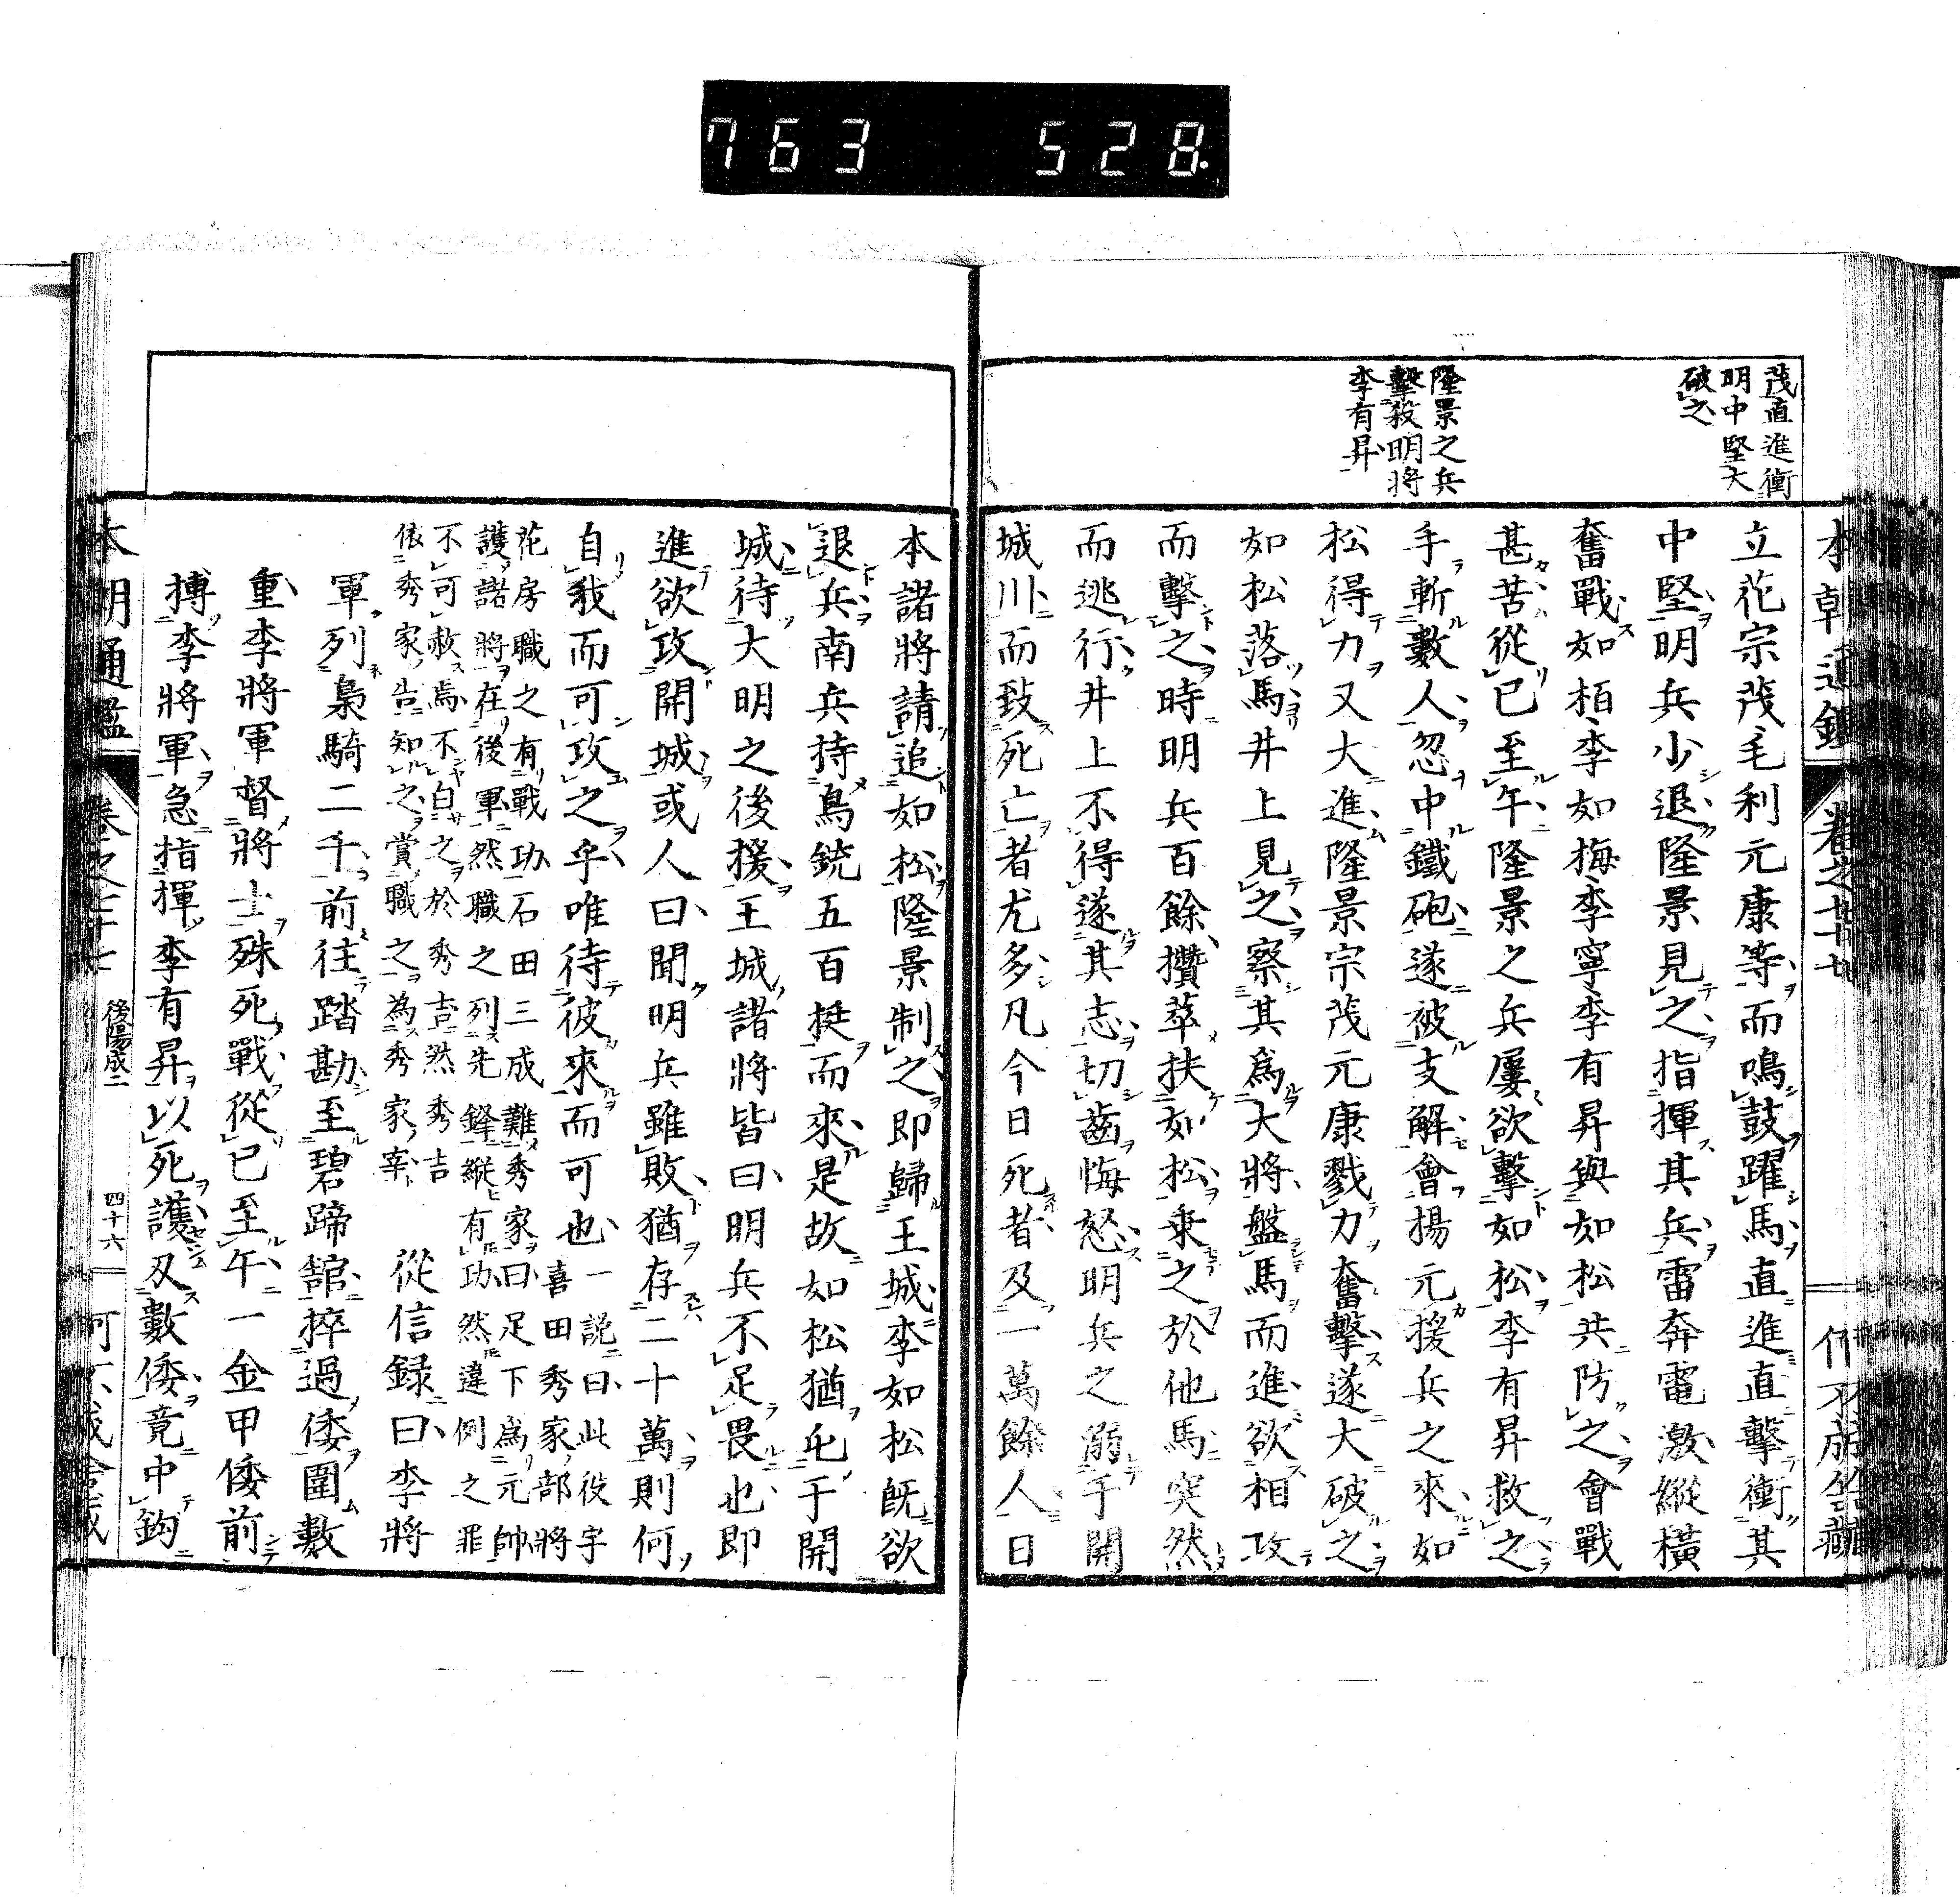 763 528.
茂直進衝
明中堅大
破之
隆景之兵
擊殺明將
李有昇
本朝通鑑
立花宗茂毛利元康等而鳴鼓躍馬直進直擊衝其
中堅明兵少退隆景見之指揮其兵雷奔電激縱橫
奮戰如栢李如梅李寧李有昇與如松共防之會戰
甚苦從巳至午隆景之兵屢欲擊如松李有昇救之
手斬數人忽中鐵砲遂被支解會揚元援兵之來如
松得力又大進隆景宗茂元康戮力奮擊遂大破之
如松落馬井上見之察其爲大將盤馬而進欲相攻
而擊之時明兵百餘攢萃扶如松乘之於他馬突然
而逃行井上不得遂其志切齒悔怒明兵之溺于開
城川而致死亡者尤多凡今日死者及一萬餘人日
本諸將請追如松隆景制之即歸王城李如松既欲
退兵南兵持鳥銃五百挺而來是故如松猶屯于開
城待大明之後援王城諸將皆曰明兵不足畏也即
進欲攻開城或人曰聞明兵雖敗猶存二十萬則何
自我而可攻之乎唯待彼來而可也一說曰此役宇
喜田秀家部將
花房職之有戰功石田三成難秀家曰足下爲元帥
護諸將在後軍然職之列先鋒縱有功然違例之罪
不可赦焉不白之於秀吉然秀吉
依秀家告知之賞職之為秀家宰
從信録曰李將
軍列梟騎二千前往踏勘至碧蹄館捽過倭圍數
重李將軍督將士殊死戰從巳至午一金甲倭前
搏李將軍急指揮李有昇以死護及數倭竟中鉤
本朝通鑑
後陽成二
四十六